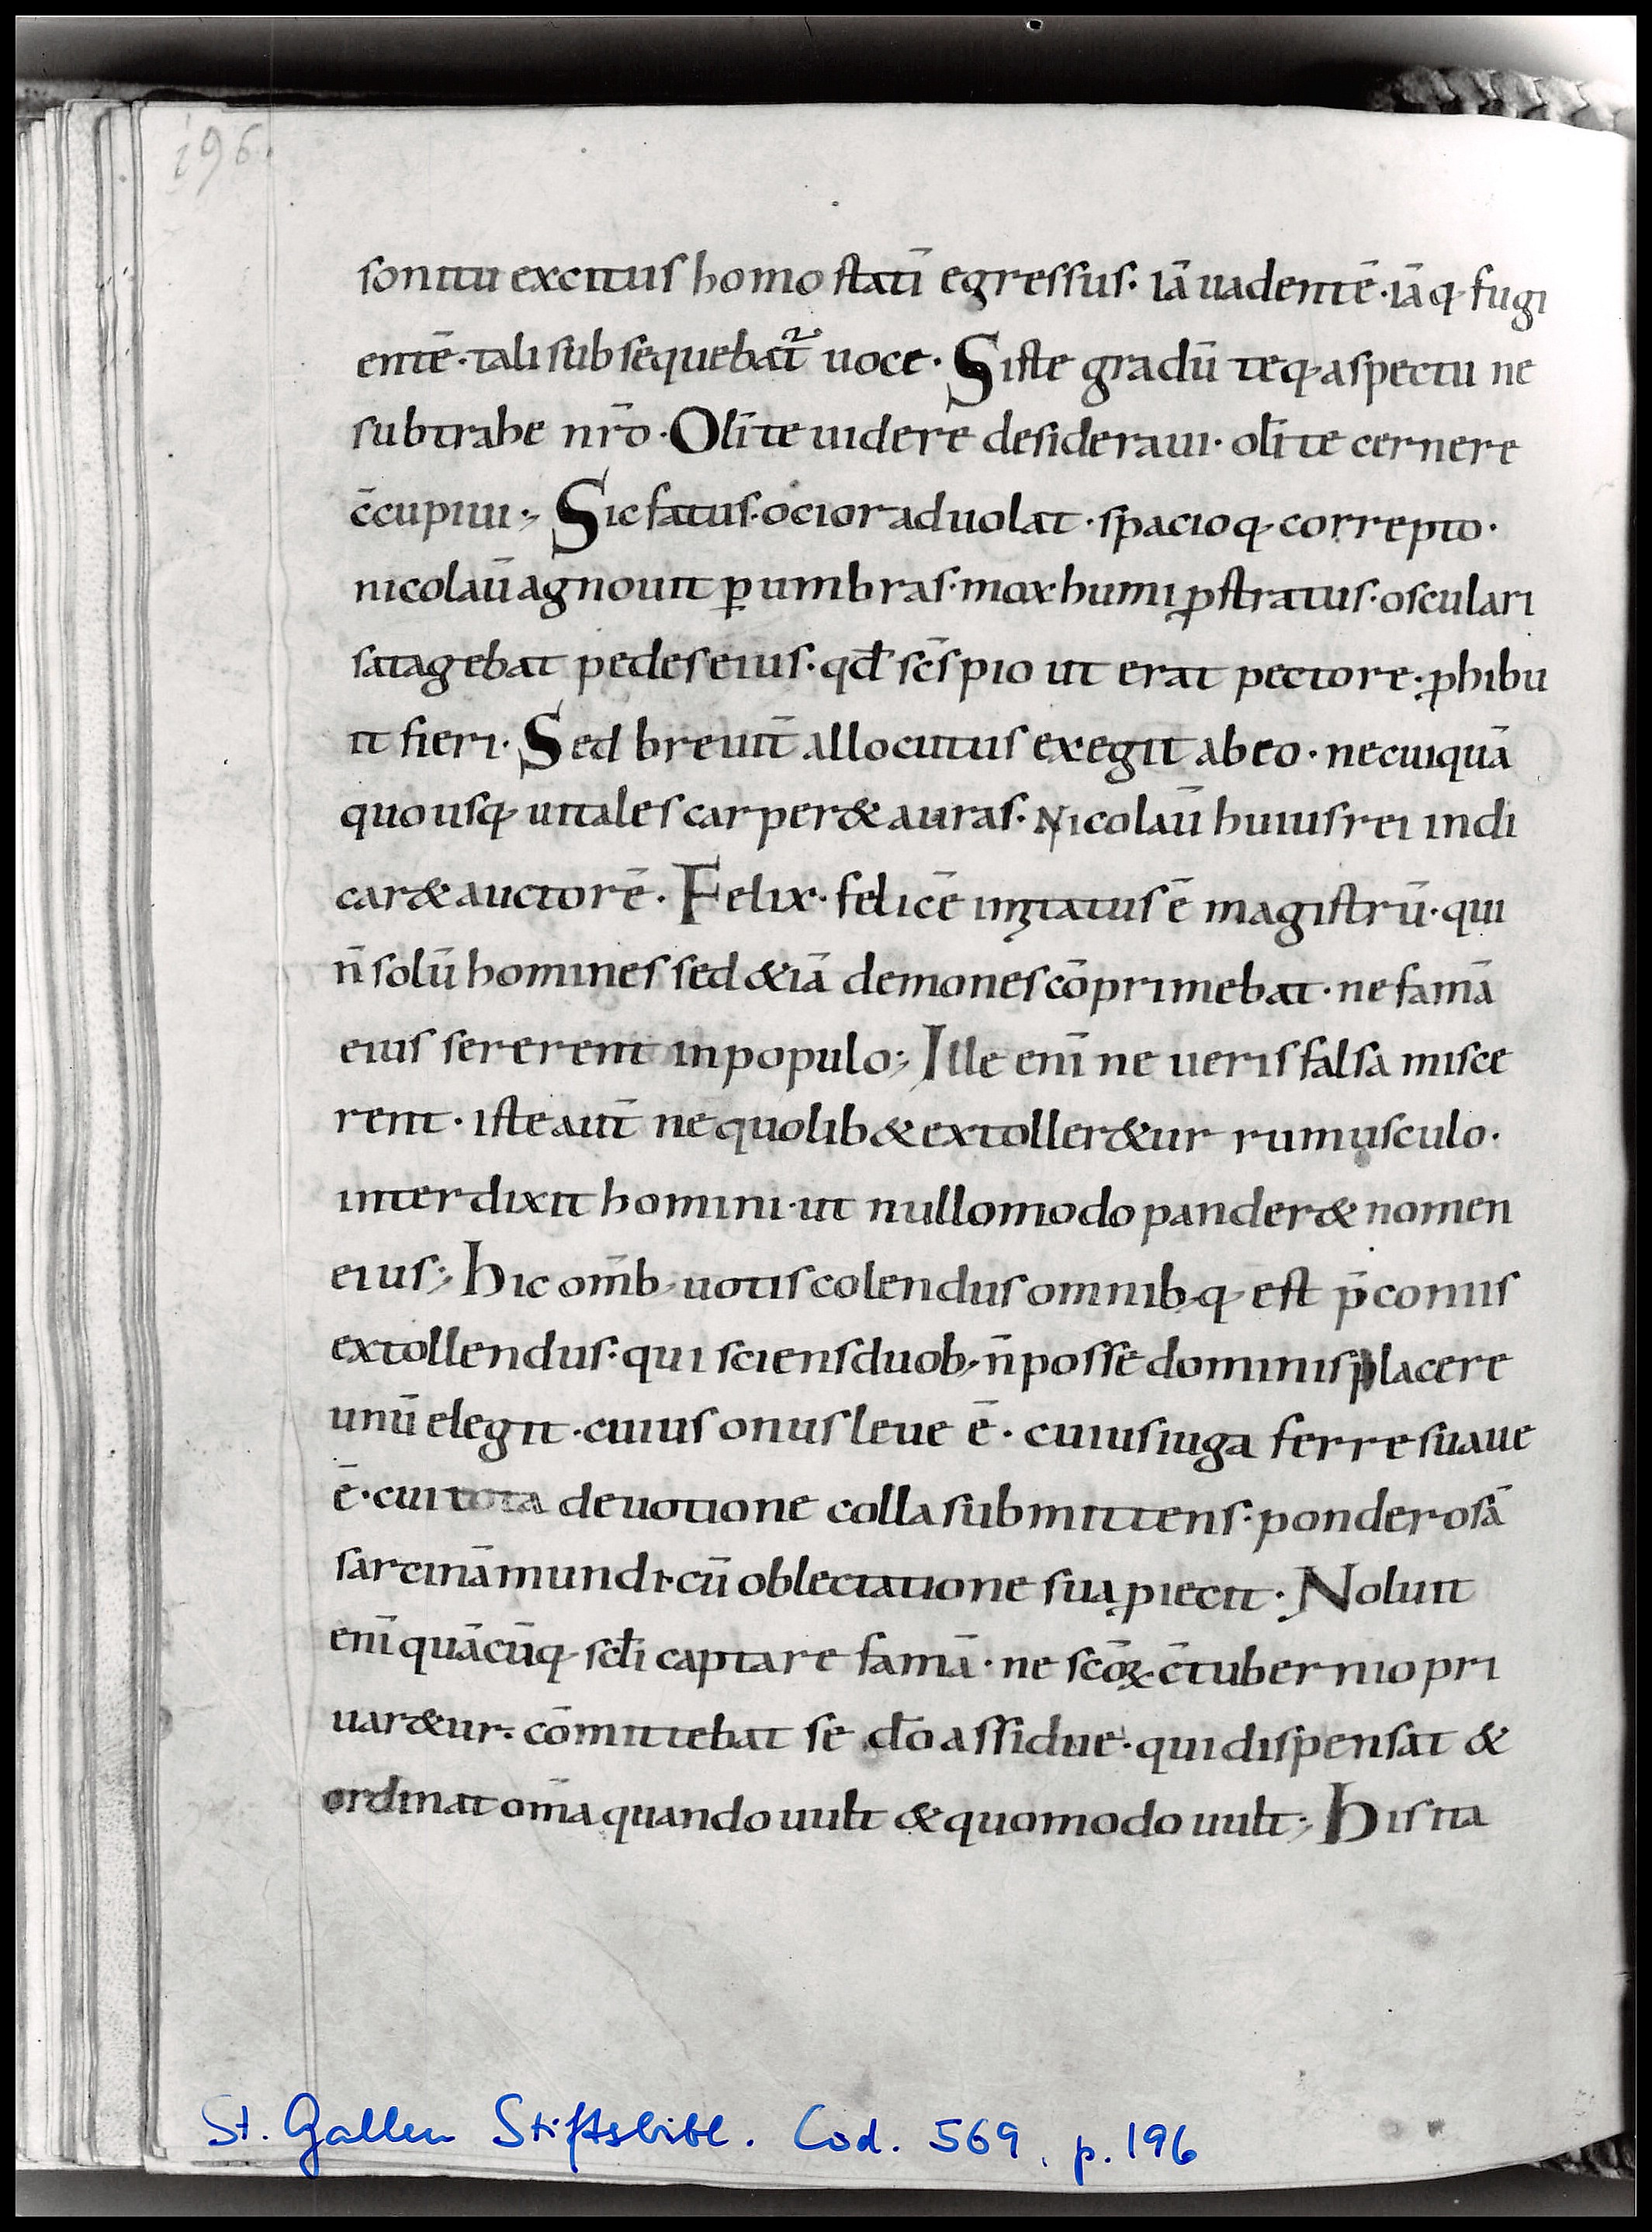 196.
sonitu excitus homo statī egressus. iā uadentē. iāq. fugi
entē. tali subsequebat̄ uoce. Siste gradū teq. aspectu ne
subtrahe nr̄o. Olī te uidere desideraui. olī te cernere
c̄cupiui; Sic fatus. ocior aduolat. spacioq. correpto.
nicolaū agnouit ꝑ umbras. mox humi ꝓstratus. osculari
satagebat pedes eius. qđ sc̄s pio ut erat pectore. ꝓhibu
it fieri. Sed breuit̄ allocutus exegit ab eo. ne cuiquā
quousq. uitales carper& auras. Nicolaū huius rei indi
car& auctorē. Felix. felicē imitatus ē magistrū. qui
n̄ solū homines sed &iā demones cōprimebat. ne famā
eius sererent in populo; Ille enī ne ueris falsa misce
rent. iste aut̄ ne quolib& extoller&ur rumusculo.
interdixit homini. ut nullomodo pander& nomen
eius; hic om̄ib. uotis colendus omnib.q. est p̄coniis
extollendus. qui sciens duob. n̄ posse dominis placere
unū elegit. cuius onus leue ē. cuius iuga ferre suaue
ē. cui tota deuotione colla submittens. ponderosā
sarcinā mundi cū oblectatione sua ꝓiecit. Noluit
enī quācūq. scłi captare famā. ne sc̄oꝝ c̄tubernio pri
uar&ur. cōmittebat se dō assidue. qui dispensat &
ordinat om̄a quando uult & quomodo uult; his ita
St. Gallen Stiftsbibl. Cod. 569, p. 196